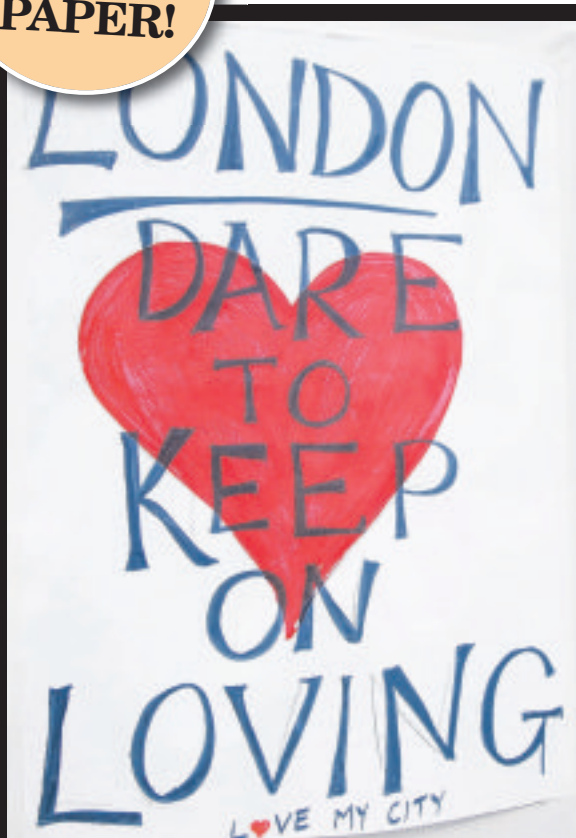 PAPER!
LONDON
DARE
TO
KEEP
ON
LOVING
L♥VE MY CITY